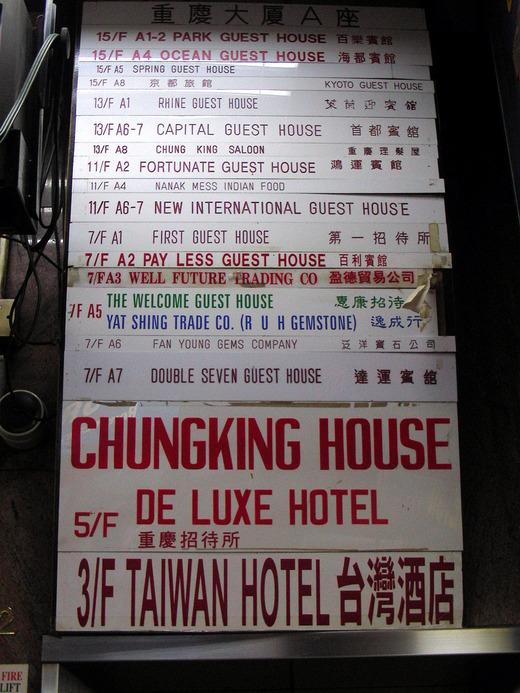 重慶大厦A座
15/F A1-2 PARK GUEST HOUSE 百樂賓館
15/F A4 OCEAN GUEST HOUSE 海都賓館
15/F A5 SPRING GUEST HOUSE
15/F A8 京都旅館 KYOTO GUEST HOUSE
13/F A1 RHINE GUEST HOUSE 萊茵迎賓舘
13/F A6-7 CAPITAL GUEST HOUSE 首都賓舘
13/F A8 CHUNG KING SALOON 重慶理髮屋
11/F A2 FORTUNATE GUEST HOUSE 鴻運賓館
11/F A4 NANAK MESS INDIAN FOOD
11/F A6-7 NEW INTERNATIONAL GUEST HOUSE
7/F A1 FIRST GUEST HOUSE 第一招待所
7/F A2 PAY LESS GUEST HOUSE 百利賓館
7/F A3 WELL FUTURE TRADING CO 盈德貿易公司
7/F A5 THE WELCOME GUEST HOUSE 惠康招待
YAT SHING TRADE CO. (R U H GEMSTONE) 逸成行
7/F A6 FAN YOUNG GEMS COMPANY 泛洋寶石公司
7/F A7 DOUBLE SEVEN GUEST HOUSE 達運賓舘
CHUNGKING HOUSE
5/F DE LUXE HOTEL
重慶招待所
3/F TAIWAN HOTEL 台灣酒店
FIRE
LIFT